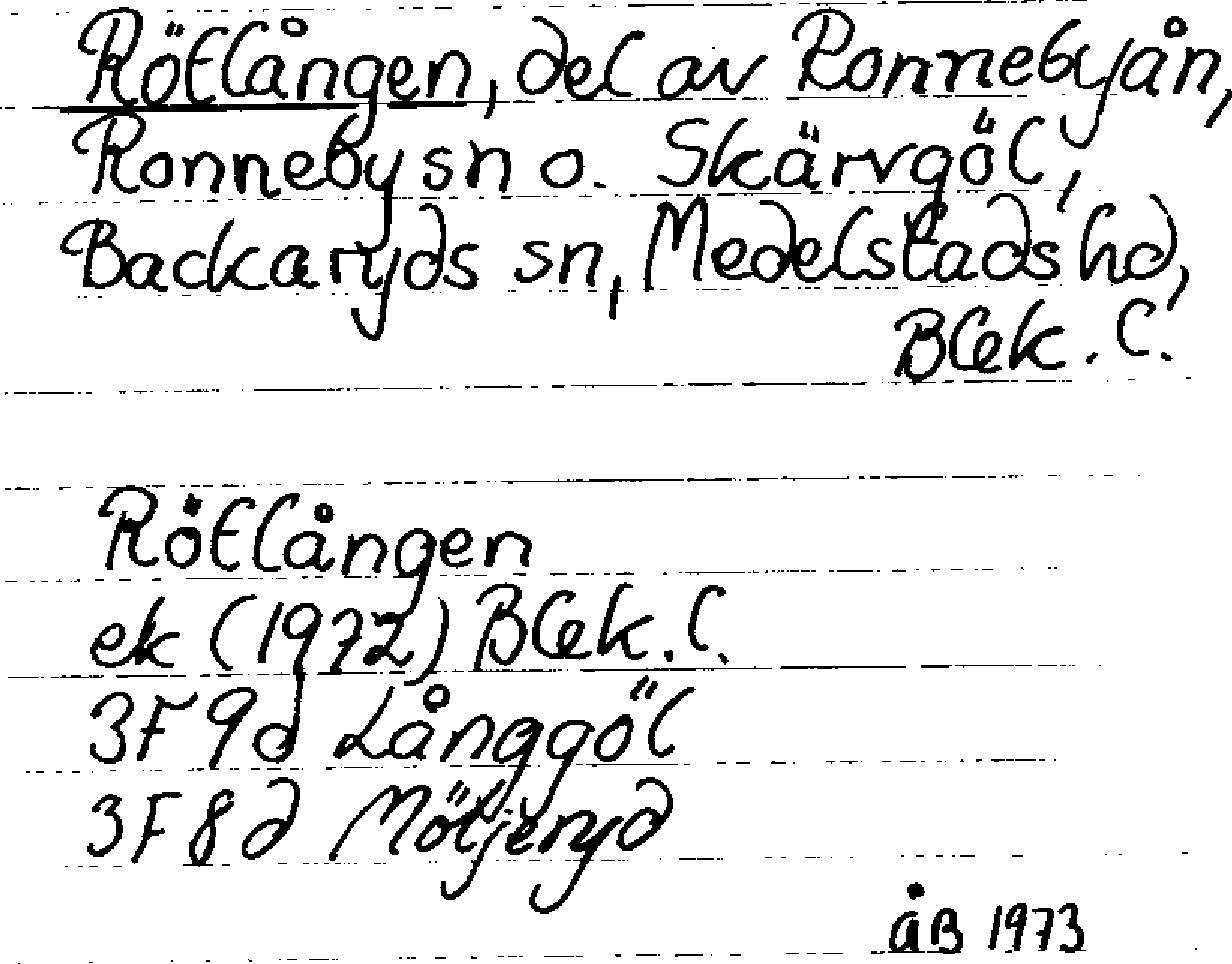 Rötlången, del av Ronnebyån,
Ronneby sn o. Skärvgöl,
Backaryds sn, Medelstads hd,
Blek. l.
Rötlången
ek (1972) Blek. l.
3F 9d Långgöl
3F 8d Möljeryd
åB 1973